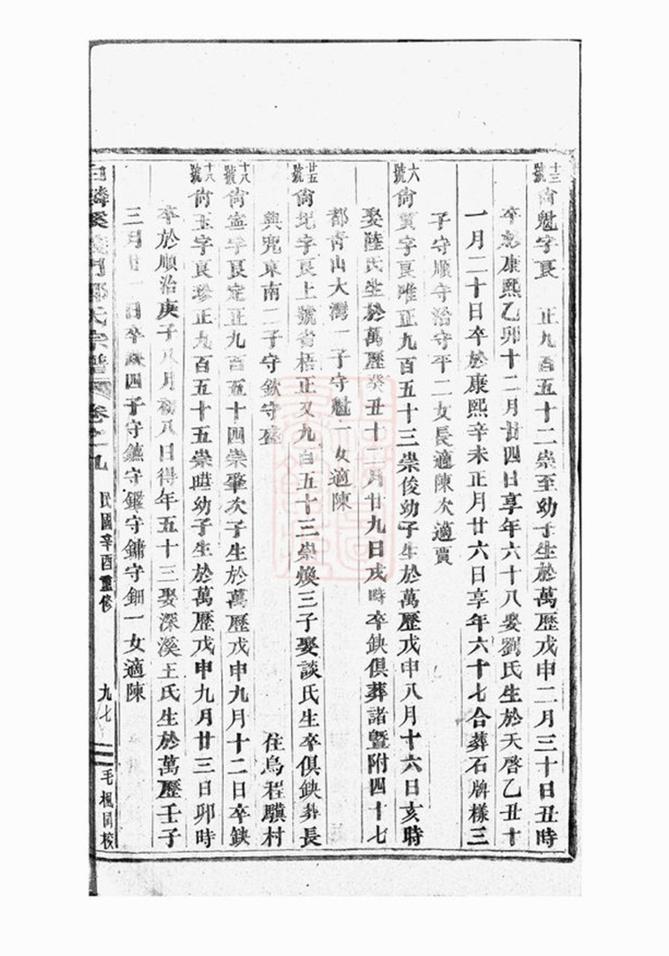 十三號尙魁字良 正九百五十二崇至幼子生於萬歷戊申二月三十日丑時
卒於康熙乙卯十二月廿四日享年六十八娶劉氏生於天啓乙丑十
一月二十日卒於康熙辛未正月廿六日享年六十七合葬石牌樣三
子守順守治守平二女長適陳次適賈
六號尙賓字良唯正九百五十三崇俊幼子生於萬歷戊申八月十六日亥時
娶陸氏生於萬歷癸丑十二月廿九日戌時卒缺俱葬諸暨附四十七
都靑山大灣一子守魁一女適陳
廿五號尙圯字良上號省梧正又九百五十三崇煥三子娶談氏生卒俱缺葬長
興兜東南二子守欽守 住烏程驥村
十八號尙寧字良定正九百五十四崇肇次子生於萬歷戊申九月十二日卒缺
十八號尙玉字良珍正九百五十五崇 幼子生於萬歷戊申九月廿三日卯時
卒於順治庚子八月初八日得年五十三娶深溪王氏生於萬歷壬子
三月四日卒 四子守 守鑑守鏽守鈿一女適陳
白麟溪義門鄭氏宗譜 卷之九 民國辛酉重修 九七 毛楓同校